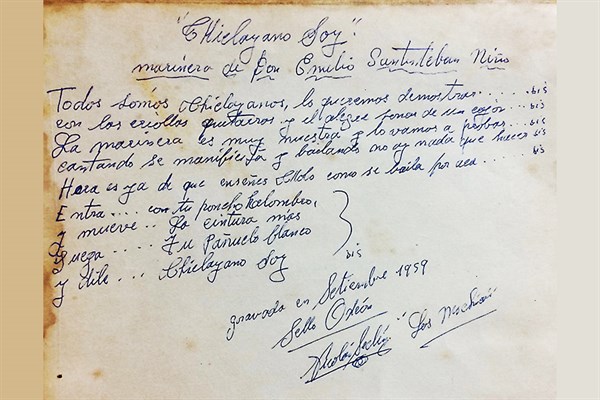 "Chiclayano Soy"
marinera de Don Emilio Santisteban Niño
Todos somos chiclayanos, lo queremos demostrar ...... bis
con las criollas guitarras y el alegre sonar de un cajón ... bis
La marinera es muy nuestra y lo vamos a probar ... bis
cantando se manifiesta y bailando no ay nada que hacer bis
Hora es ya de que enseñes como se baila por aca ...... bis
Entra .... con tu poncho
y mueve .. La cintura más
Juega ..... Tu Pañuelo blanco
y dile ... Chiclayano Soy
bis
gravada en Setiembre 1959
Sello Odeón
Nicolás "Los Mochicas"